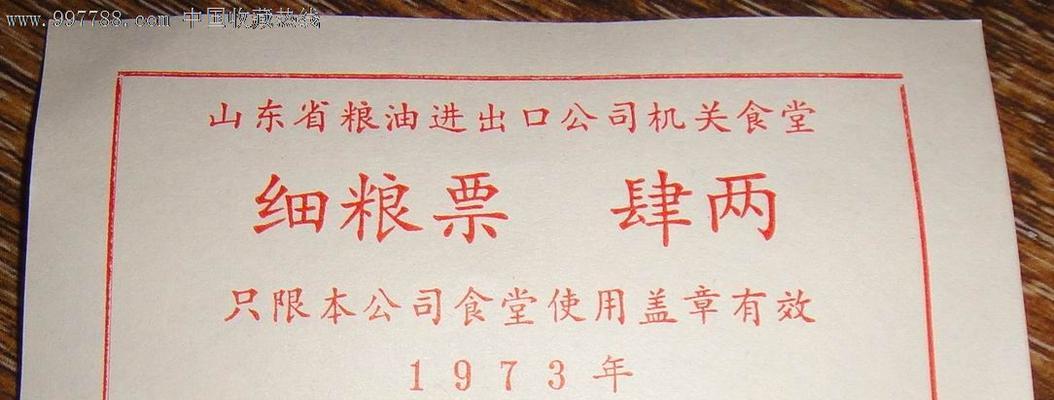 www.997788.com 中国收藏热线
山东省粮油进出口公司机关食堂
细粮票 肆两
只限本公司食堂使用盖章有效
1973年